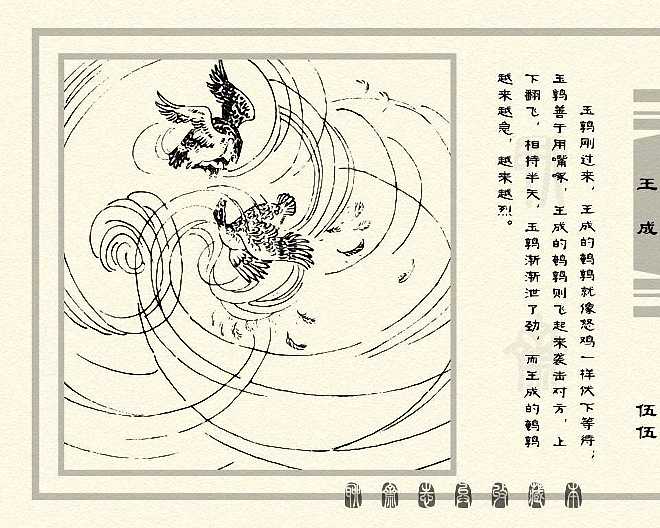 玉鹑刚过来，王成的鹌鹑就像怒鸡一样伏下等待；
玉鹑善于用嘴啄，王成的鹌鹑则飞起来袭击对方，上
下翻飞，相持半天，玉鹑渐渐泄了劲，而王成的鹌鹑
越来越急，越来越烈。
王成
伍伍